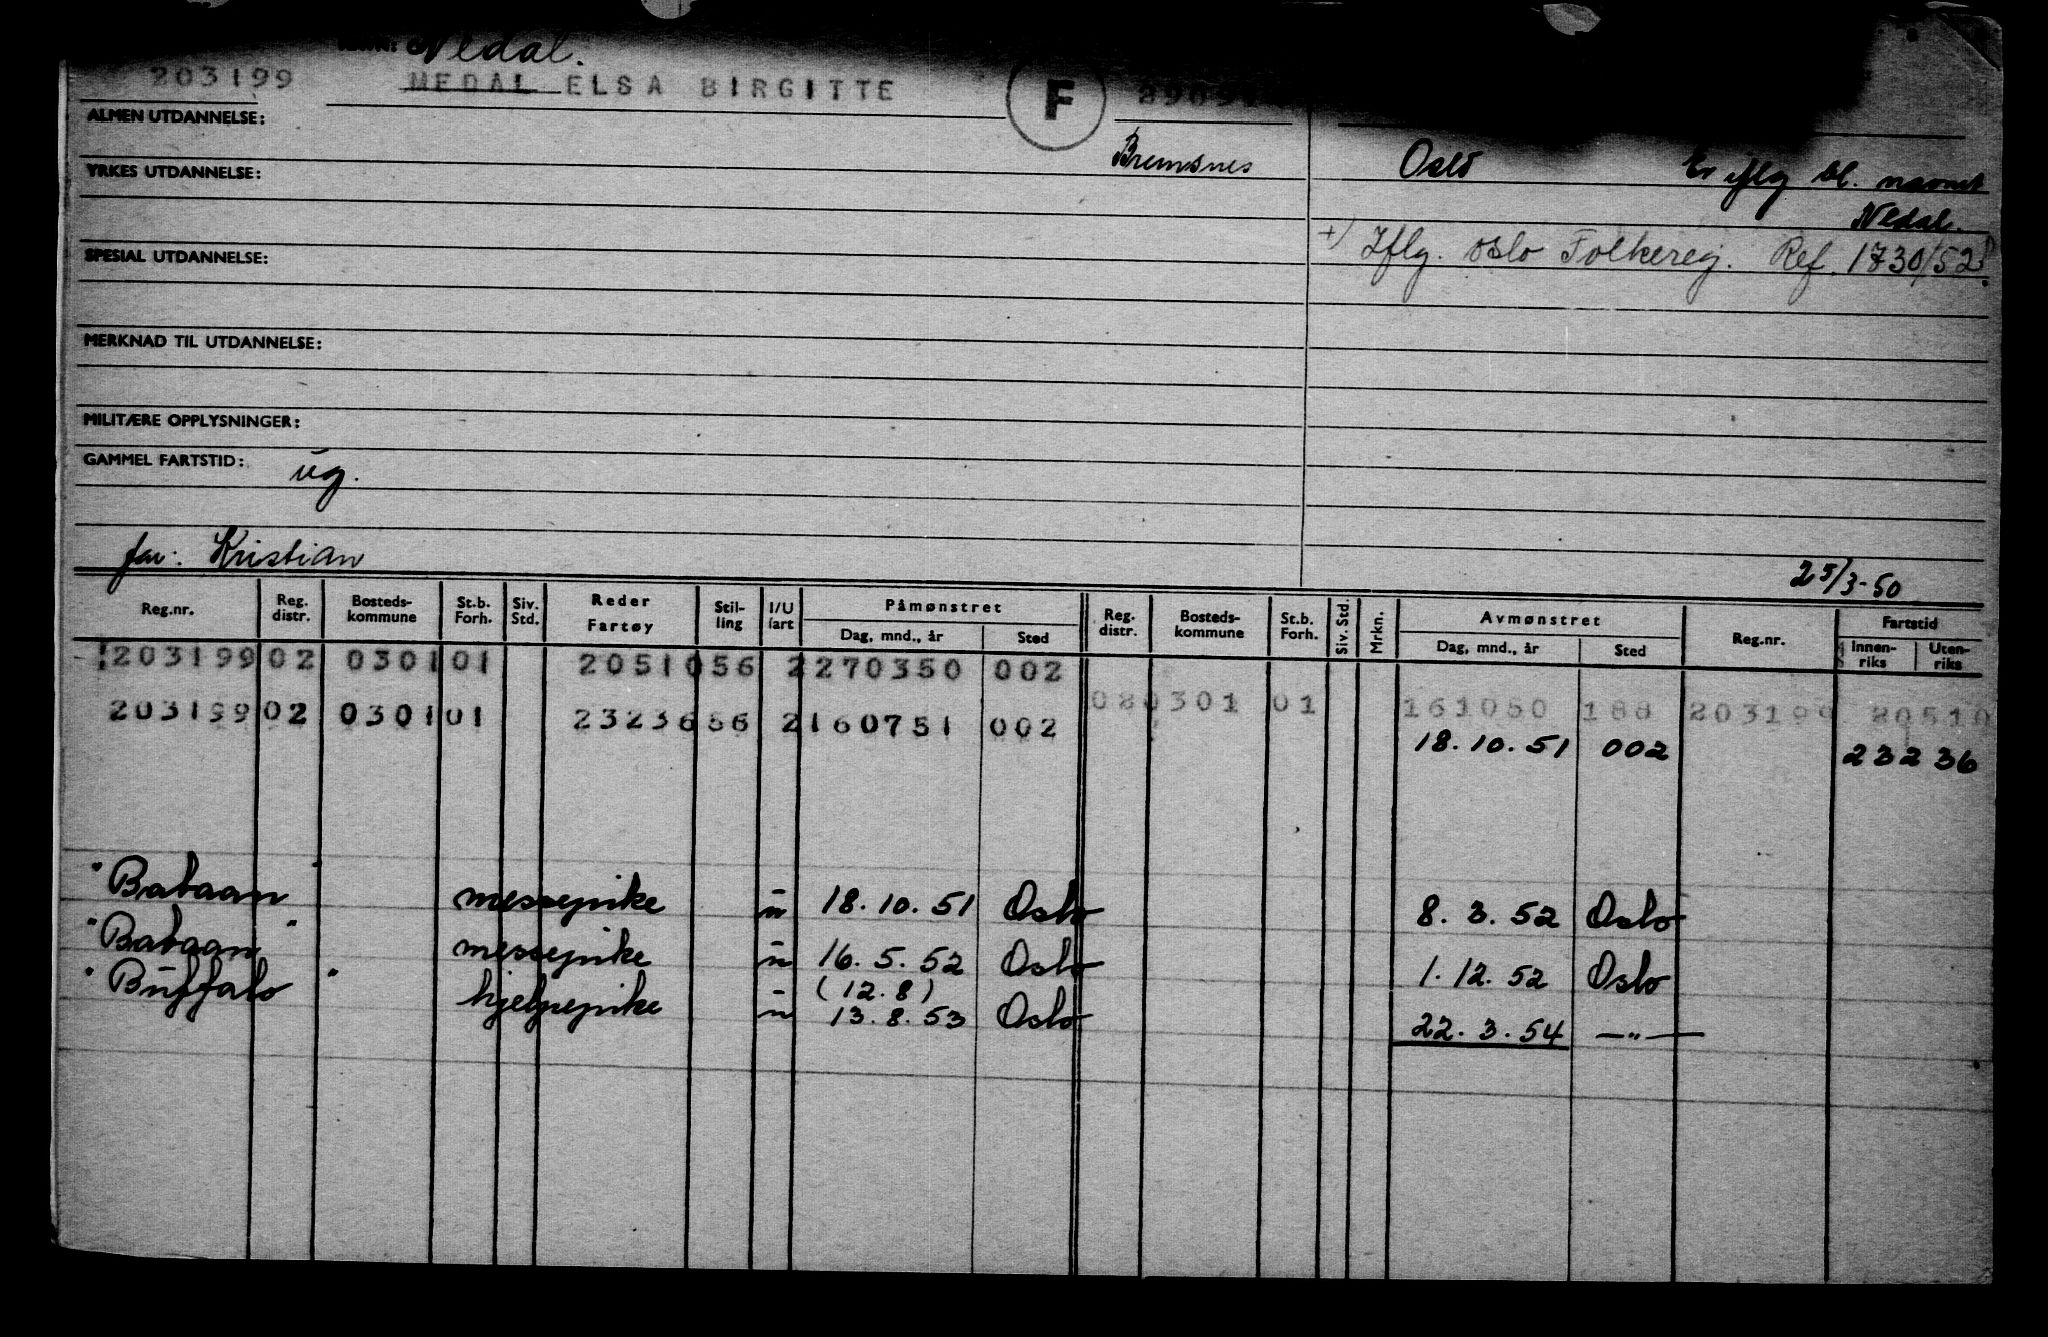 Nedal.
203199 MEDAL ELSA BIRGITTE F
ALMEN UTDANNELSE:
Bremsnes Oslo Er iflg bl. navnet
YRKES UTDANNELSE:
Nedal.
+) Iflg. Oslo Folkereg. Ref. 1730/52
SPESIAL UTDANNELSE:
MERKNAD TIL UTDANNELSE:
MILITÆRE OPPLYSNINGER:
GAMMEL FARTSTID: ug.
far: Kristian
25/3-50
Reg.nr. Reg. distr. Bosteds-kommune St.b. Forh. Siv. Std. Reder Fartøy Stil-ling I/U fart Påmønstret Dag, mnd., år Sted Reg. distr. Bosteds-kommune St.b. Forh. Siv. Std. Mrkn. Avmønstret Dag, mnd., år Sted Reg.nr. Fartstid Innen-riks Uten-riks
203199 02 0301 01 20510 56 2 270350 002
08 0301 01 161050 188 203199 20510
203199 02 0301 01 23236 56 2 160751 002
18.10.51 002 23236
"Bataan" messepike u 18.10.51 Oslo 8.3.52 Oslo
"Bataan" messepike u 16.5.52 Oslo 1.12.52 Oslo
(12.8)
"Buffalo" hjelpepike u 13.8.53 Oslo 22.3.54 —"—